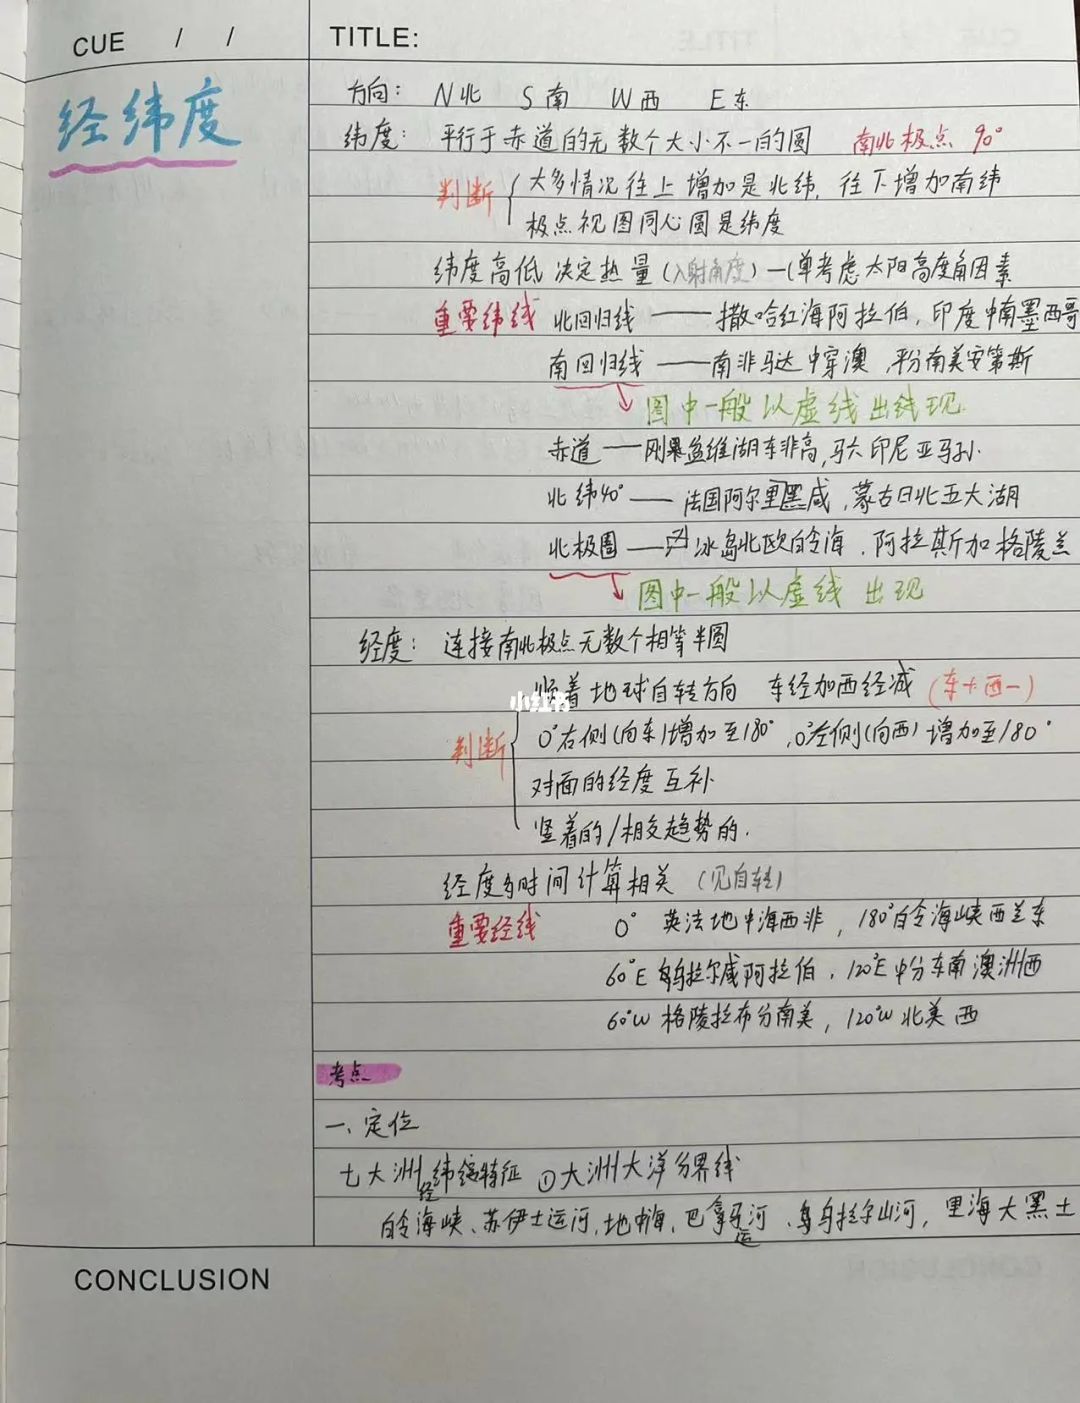 CUE / /
TITLE:
经纬度
方向: N北 S南 W西 E东
纬度: 平行于赤道的无数个大小不一的圆 南北极点 90°
判断 大多情况往上增加是北纬, 往下增加南纬
极点视图同心圆是纬度
纬度高低决定热量(入射角度)—(单考虑太阳高度角因素
重要纬线 北回归线 —— 撒哈红海阿拉伯, 印度中南墨西哥
南回归线 —— 南非马达中穿澳, 平分南美安第斯
图中一般以虚线出线现
赤道 —— 刚果盆维湖东非高, 马六印尼亚马孙.
北纬40° —— 法国阿尔里黑咸, 蒙古日北五大湖
北极圈 —— 冰岛北欧白令海, 阿拉斯加格陵兰
图中一般以虚线出现
经度: 连接南北极点无数个相等半圆
顺着地球自转方向 东经加西经减 (东+西-)
小红书
判断 0°右侧(向东)增加至180°, 0°左侧(向西)增加至180°
对面的经度互补
竖着的/相交趋势的.
经度与时间计算相关 (见自转)
重要经线 0° 英法地中海西非, 180°白令海峡西兰东
60°E 乌拉尔咸阿拉伯, 120°E中分东南澳洲西
60°W 格陵拉布分南美, 120°W北美西
考点
一、定位
七大洲经纬线特征 ①大洲大洋分界线
白令海峡、苏伊士运河, 地中海、巴拿马运河、乌拉尔山河, 里海大黑土
CONCLUSION